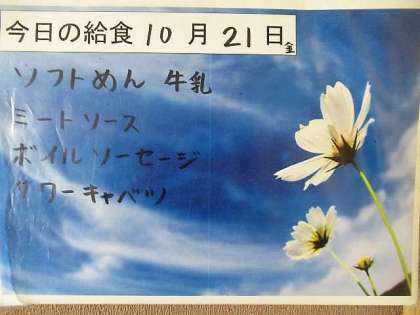 今日の給食 10月21日金
ソフトめん 牛乳
ミートソース
ボイルソーセージ
グワーキャベツ